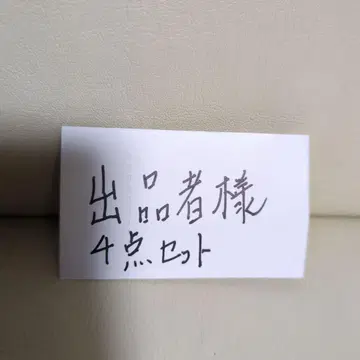 出品者様
4点セット